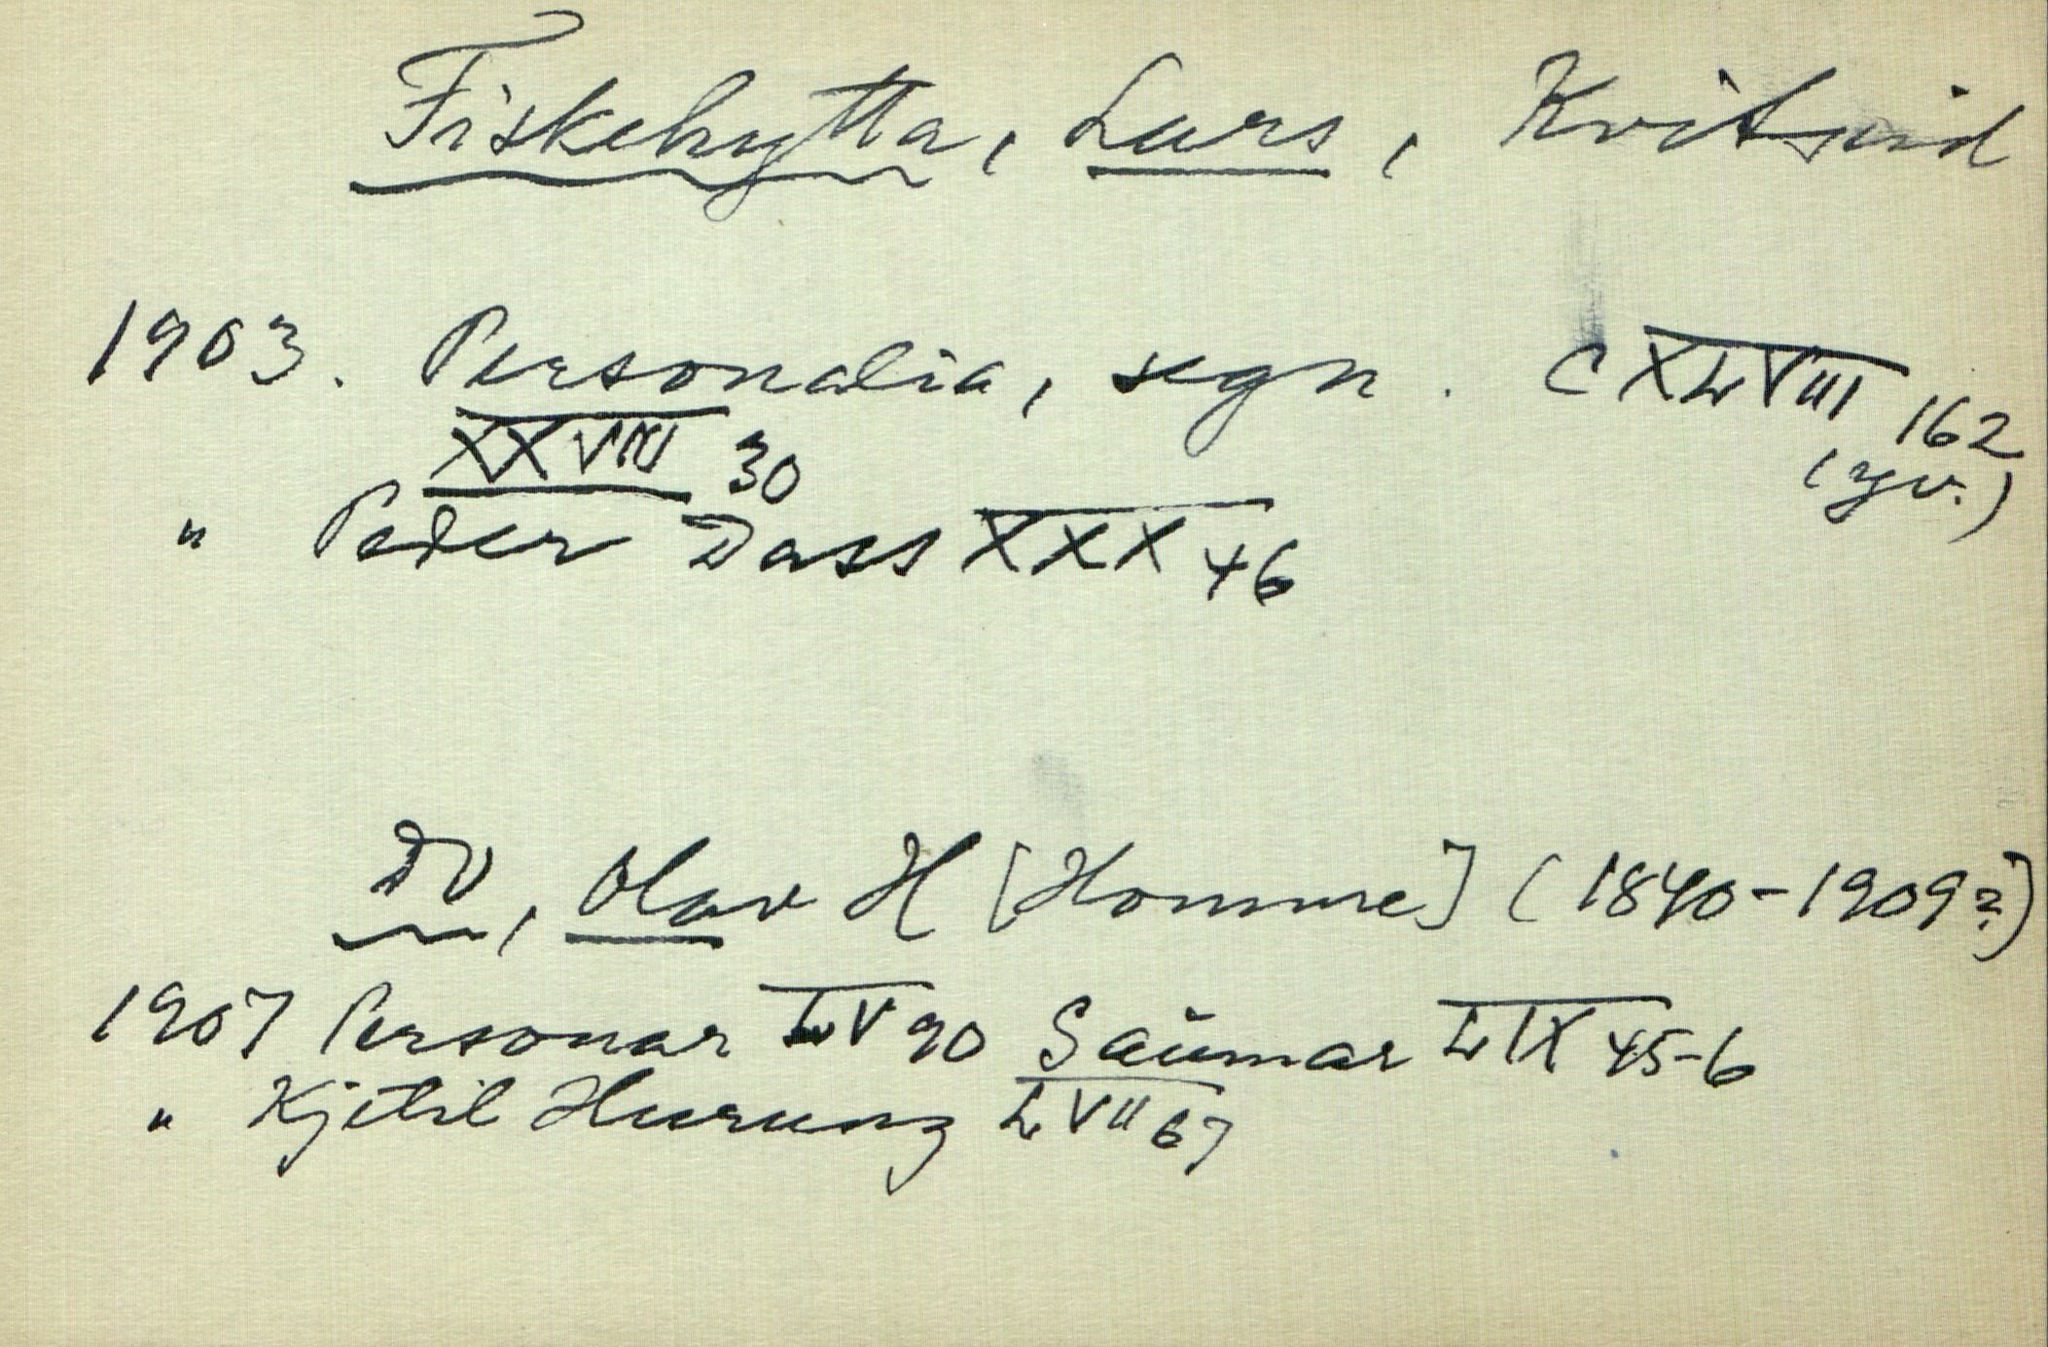 Fiskehytta, Lars, Kvitseid
1903. Personalia, segn. CXLVIII 162
XXVIII 30 (yv.)
" Peder Dass XXX 46
DO, Olav H [Homme] (1840-1909?)
1907 Personar LV 90 Saumar LIX 45-6
" Kjetil Hurung LVII 67